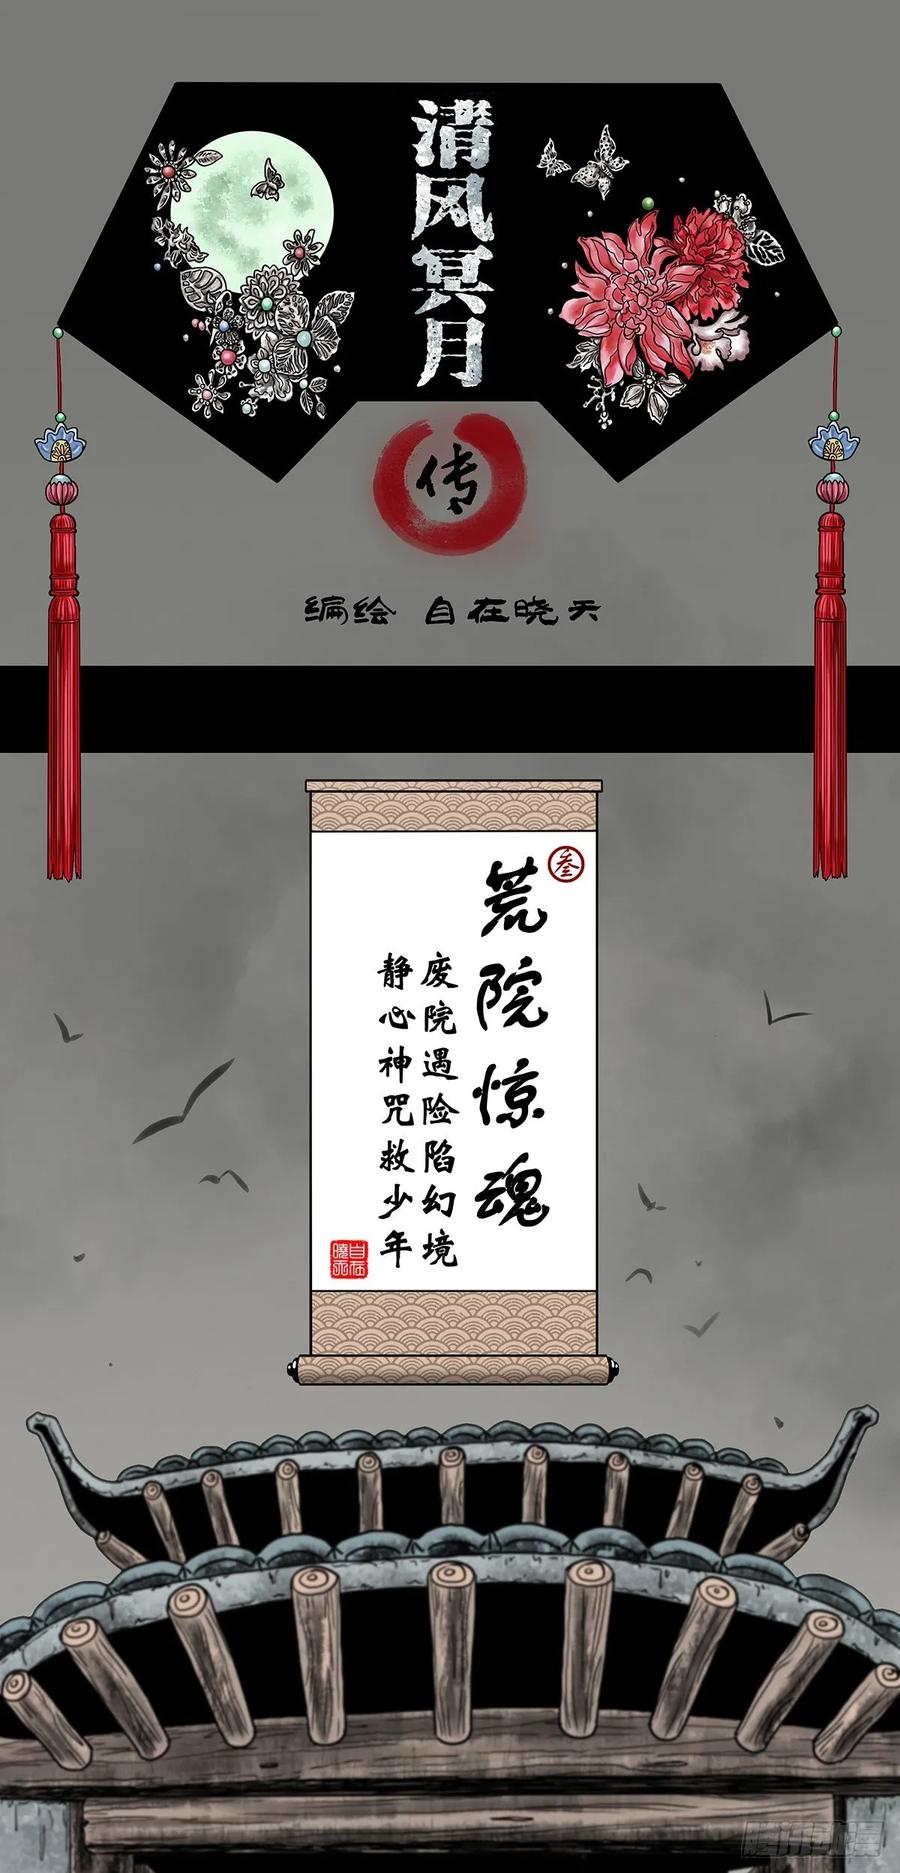 清风冥月
传
编绘 自在晓天
叁
荒院惊魂
废院遇险陷幻境
静心神咒救少年
自在
曉天
腾讯动漫